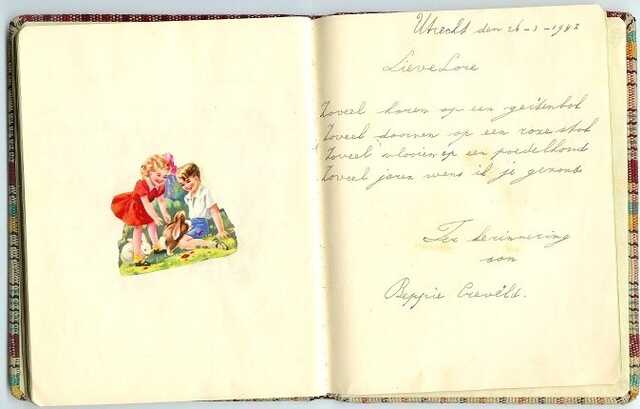 Utrecht den 26-3-1943
Lieve Lore
Zoveel haren op een geitenbok
Zoveel doornen op een rozestok
Zoveel vlooien op een poedelhond
Zoveel jaren wens ik je gezond
Ter herinnering
aan
Beppie Creveld.